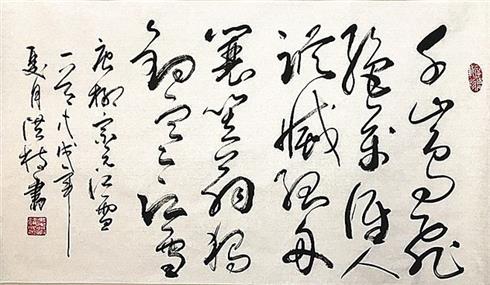 千山鳥飛
絕萬徑人
蹤滅孤舟
蓑笠翁獨
釣寒江雪
唐柳宗元江雪
一首戊戌年
夏月洪特書